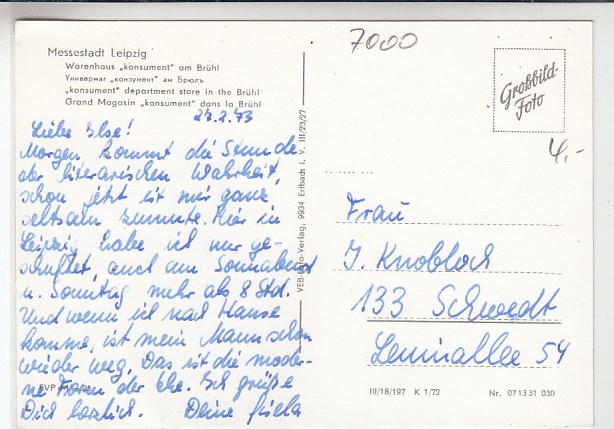 7000
Messestadt Leipzig
Warenhaus „konsument" am Brühl
Универмаг „конзумент" ам Брюль
„konsument" department store in the Brühl
Grand Magasin „konsument" dans la Brühl
Großbild-
Foto
4,-
27.2.73
Liebe Ilse!
Morgen kommt die Stunde
der literarischen Wahrheit,
schon jetzt ist mir ganz
seltsam zumute. Hier in
Leipzig habe ich nur ge-
schuftet, auch am Sonnabend
u. Sonntag mehr als 8 Std.
Und wenn ich nach Hause
komme, ist mein Mann schon
wieder weg. Das ist die moder-
ne Form der Ehe. Ich grüße
Dich herzlich. Deine Gisela
VEB Foto-Verlag, 9934 Erlbach i. V. III/23/27
Frau
J. Knobloch
133 Schwedt
Leninallee 54
EVP
III/18/197 K 1/72 Nr. 07 13 31 030